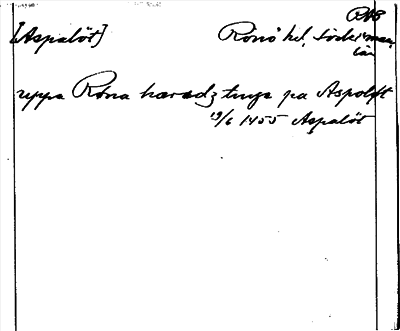 RAB
[Aspalöt] Rönö hd, Söderman
län
uppa Röna hæradz tings pa Aspolöft
19/6 1455 Aspalöt